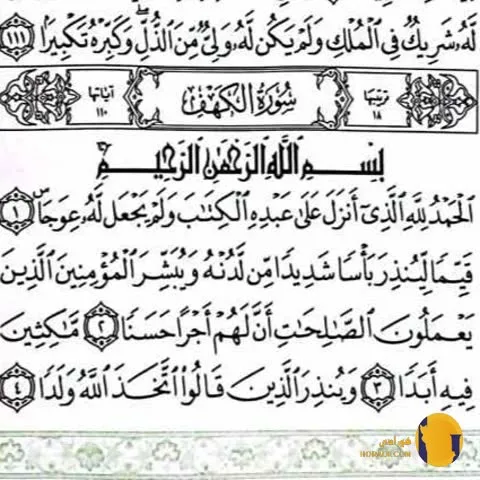 لَّهُۥ شَرِيكٌ فِي ٱلْمُلْكِ وَلَمْ يَكُن لَّهُۥ وَلِيٌّ مِّنَ ٱلذُّلِّ ۖ وَكَبِّرْهُ تَكْبِيرًا ١١١
ترتيبها ١٨ سُورَةُ الكَهْفِ آياتها ١١٠
بِسْمِ ٱللَّهِ ٱلرَّحْمَٰنِ ٱلرَّحِيمِ
ٱلْحَمْدُ لِلَّهِ ٱلَّذِىٓ أَنزَلَ عَلَىٰ عَبْدِهِ ٱلْكِتَٰبَ وَلَمْ يَجْعَل لَّهُۥ عِوَجَاۜ ١
قَيِّمًا لِّيُنذِرَ بَأْسًا شَدِيدًا مِّن لَّدُنْهُ وَيُبَشِّرَ ٱلْمُؤْمِنِينَ ٱلَّذِينَ
يَعْمَلُونَ ٱلصَّٰلِحَٰتِ أَنَّ لَهُمْ أَجْرًا حَسَنًا ٢ مَّٰكِثِينَ
فِيهِ أَبَدًا ٣ وَيُنذِرَ ٱلَّذِينَ قَالُوا۟ ٱتَّخَذَ ٱللَّهُ وَلَدًا ٤